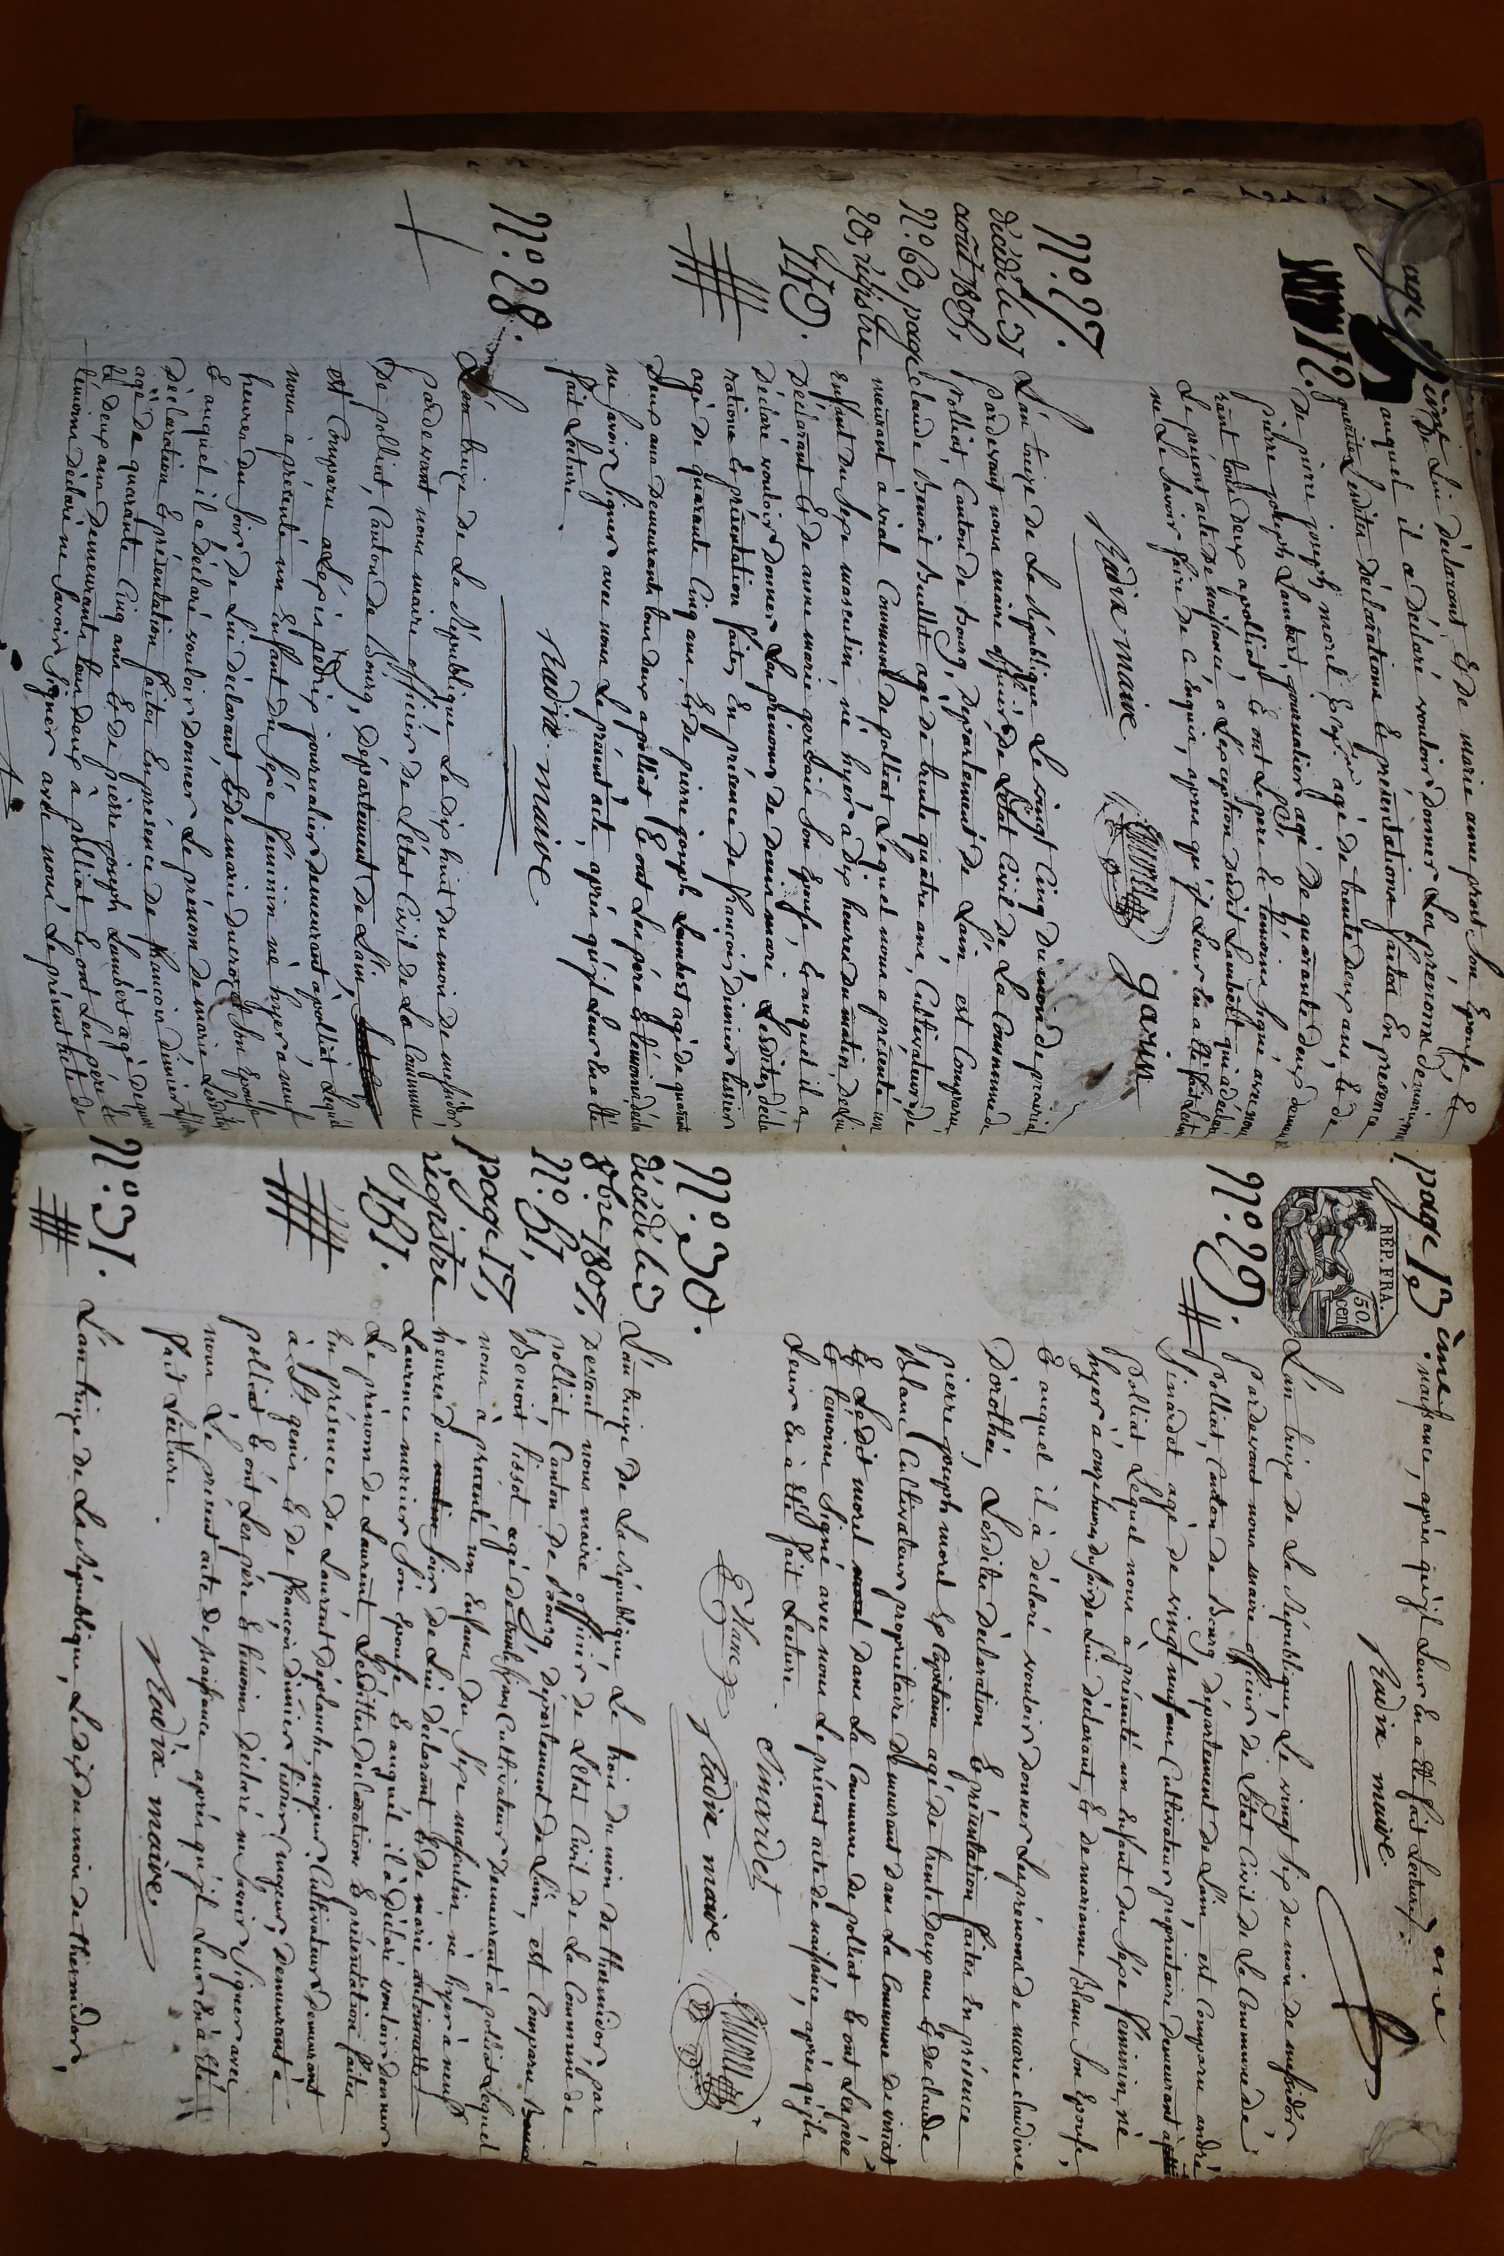 page 12 ème
de Lui déclarant, & de marie anne prost Son Epouse &
auquel il a déclaré vouloir donner Les prenoms de marie
Lesdites déclarations & présentations faites En présence
de pierre joseph morel agé de trente deux ans, & de
pierre joseph Lambert journalier agé de quarante deux
tous deux a polliat, & ont Le pere & temoins signé avec nous
Le présent acte de naissance, a L'exception dudit Lambert qui a déclaré
ne Le Savoir faire de ce Enquis, apres qu'il Leur En a été fait Lecture
Radix maire Morel garin
N.° 27.
décédé le 31
août 1806,
N.° 60, page
20, régistre
149.
L'an treize de La République Le vingt Cinq du mois de prairial
pardevant nous maire officier de L'Etat Civil de La Commune de
polliat Canton de Bourg, Département de L'ain est Comparu
Claude Benoit Buellet agé de trente quatre ans, Cultivateur
demeurant à vial Commune de polliat Lequel nous a présenté un
Enfant du Sexe masculin, né hyer à dix heures du matin, de Lui
Déclarant & de anne marie gervais Son Epouse, & auquel il a
déclaré vouloir donner Les prénoms de denis marie Lesdites décla
rations & présentation faites En présence de françois Dunier tissier
agé de quarante Cinq ans, & de pierre joseph Lambert agé de quarante
Deux ans demeurants tous deux a polliat & ont Les père & temoins déclaré
ne Savoir Signer avec nous Le présent acte, après qu'il Leur En a été
fait Lecture.
Radix maire
N.° 28.
L'an treize de La République Le dix huit du mois de messidor,
pardevant nous maire officier de L'état Civil de La Commune
de polliat, Canton de Bourg, Département de L'ain,
est Comparu journalier demeurant à polliat Lequel
nous a présenté un Enfant du Sexe feminin né hyer a neuf
heures du soir de Lui déclarant, & de marie duroux Son Epouse
& auquel il a déclaré vouloir donner Le prénom de marie Lesdites
Déclaration & présentation faites En présence de françois dunier tissier
agé de quarante Cinq ans & de pierre joseph Lambert agé de quaran
te deux ans demeurants tous deux à polliat & ont Les père &
témoins déclaré ne Savoir Signer avec nous Le présent acte de
page 13 ème
naissance, après qu'il Leur En a été fait Lecture.
Radix maire
RÉP. FRA.
50. cen.
N.° 29.
L'an treize de La République Le vingt Six du mois de messidor
pardevant nous maire officier de L'état Civil de La Commune de
polliat, Canton de Bourg, département de L'ain, est Comparu andré
Sinardet agé de vingt neuf ans Cultivateur propriétaire demeurant à
polliat Lequel nous à présenté un Enfant du Sexe féminin, né
hyer à onze heures du soir de Lui déclarant, & de marianne Blanc Son Epouse,
& auquel il à déclaré vouloir donner Les prénoms de marie claudine
Dorothée, Lesdites déclaration & présentation faites En présence
pierre joseph morel agé de trente deux ans & de claude
Blanc Cultivateur propriétaire demeurant dans La Commune de viriat
Et Ledit morel dans La Commune de polliat & ont Les père
& temoins Signé avec nous Le présent acte de naissance, après qu'il
Leur En à été fait Lecture.
Sinardet
C Blanc Radix maire Morel
N.° 30.
décédé le 3
8bre 1807,
N.° 61,
page 17,
régistre
151.
L'an treize de La République, Le trois du mois de thermidor, par
devant nous maire officier de L'état Civil de La Commune de
polliat Canton de Bourg, Département de L'ain, est Comparu
Benoit tissot agé de Cultivateur demeurant à polliat Lequel
nous à présenté un Enfant du Sexe masculin né hyer à neuf
heures du soir de Lui déclarant & de marie antoinette
Laurence mercier Son Epouse & auquel il a déclaré vouloir donner
Le prénom de Laurent Lesdittes déclaration & présentation faites
En présence de Laurent déplanche, majeur Cultivateur demeurant
à St. genis & de françois dunier, tissier, majeur, demeurant à
polliat & ont Les père & témoins déclaré ne Savoir Signer avec
nous Le présent acte de naissance après qu'il Leur En à été
fait Lecture.
Radix maire
N.° 31.
L'an treize de La République, Le dix du mois de thermidor,